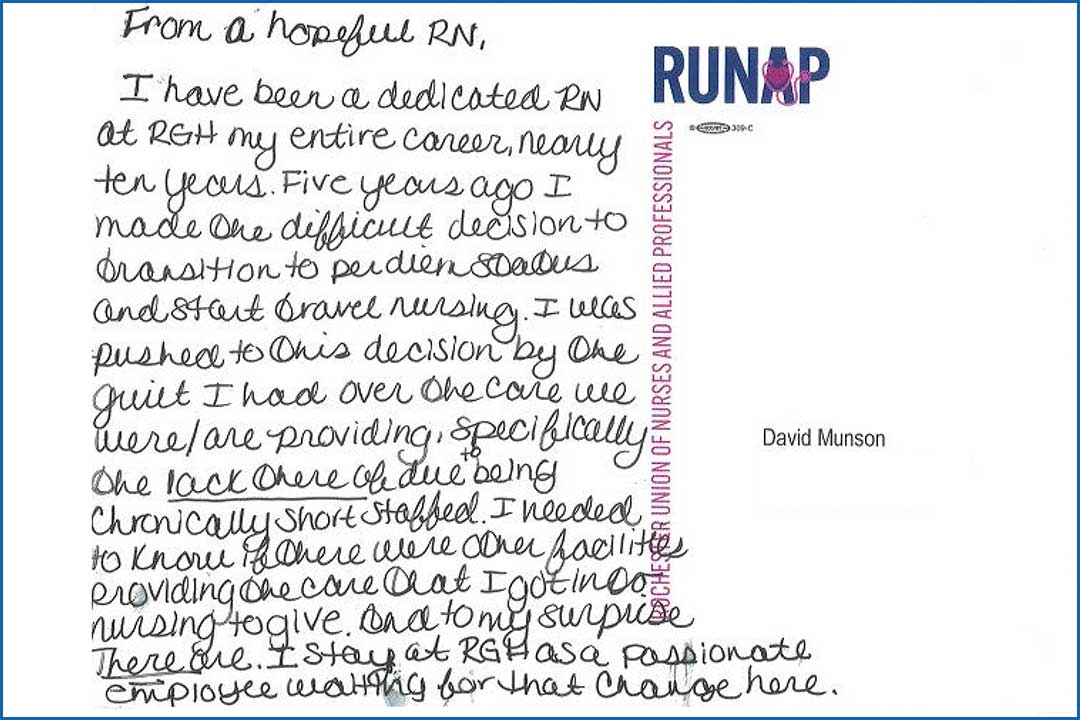 From a hopeful RN,
I have been a dedicated RN
at RGH my entire career, nearly
ten years. Five years ago I
made the difficult decision to
transition to per diem status
and start travel nursing. I was
pushed to this decision by the
guilt I had over the care we
were/are providing, specifically
the lack there of due to being
chronically short staffed. I needed
to know if there were other facilities
providing the care that I got into
nursing to give. And to my surprise
There are. I stay at RGH as a passionate
employee waiting for that change here.
RUNAP
309-C
ROCHESTER UNION OF NURSES AND ALLIED PROFESSIONALS
David Munson